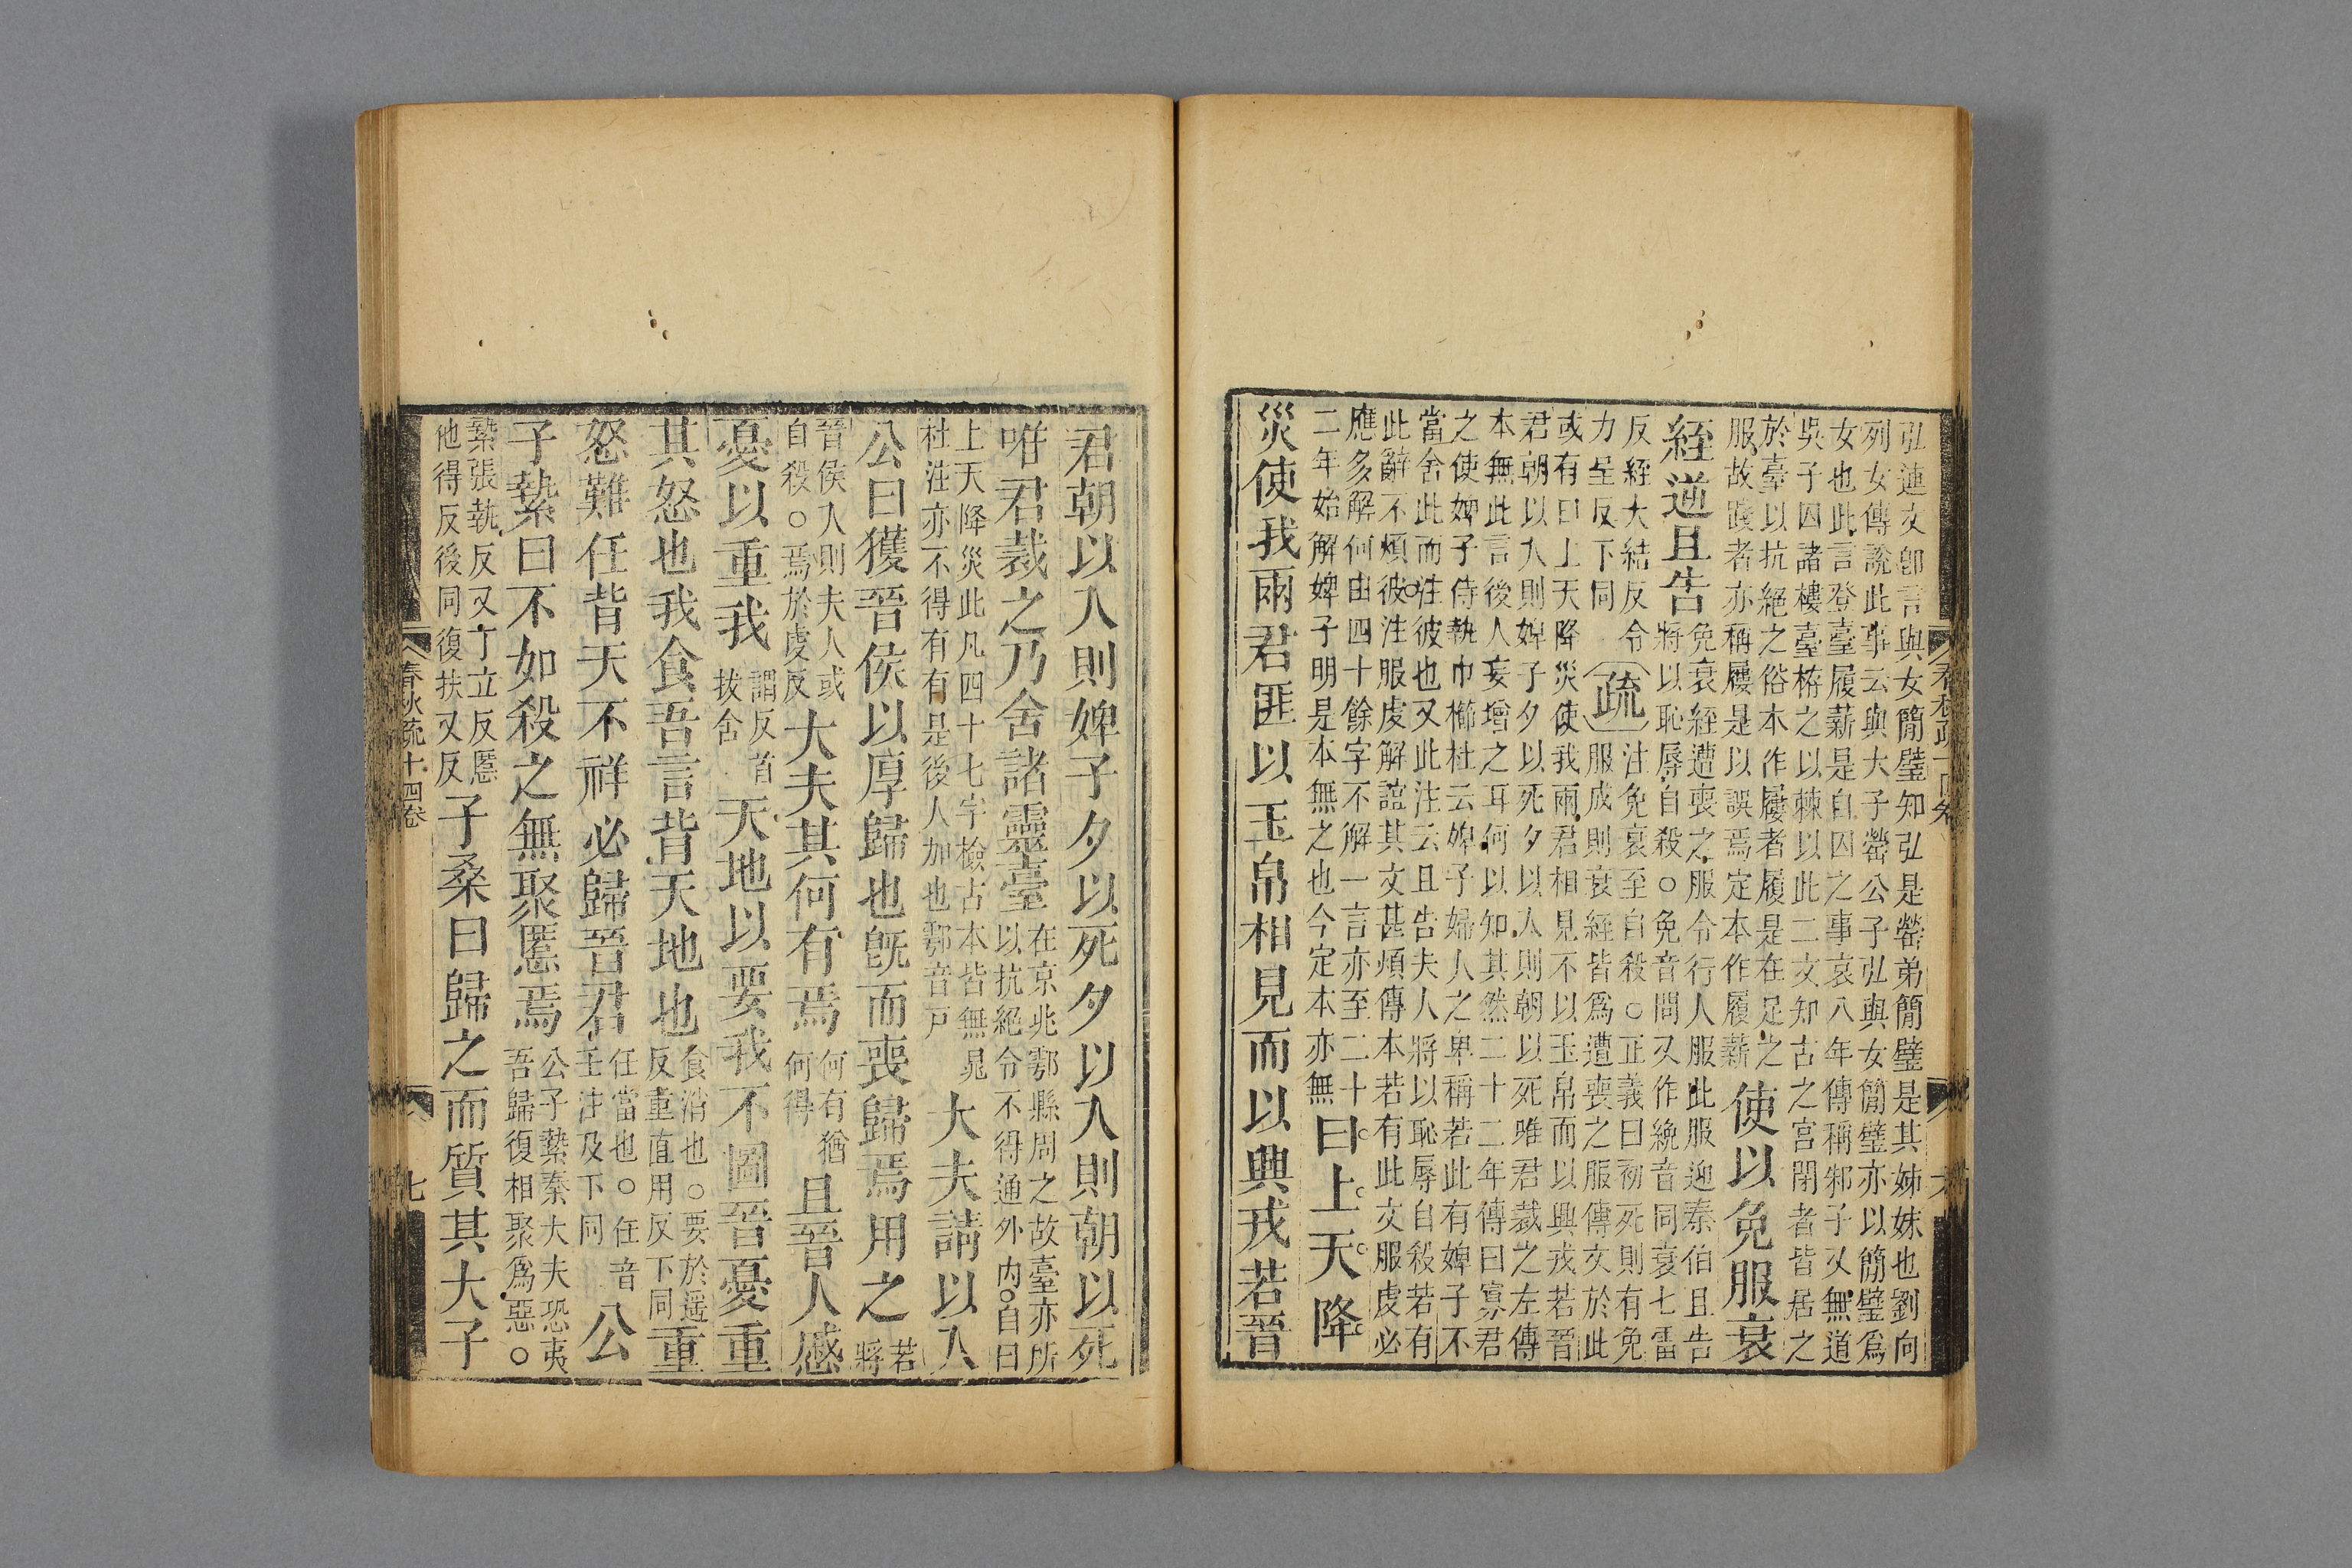 弘連文卽言與女簡璧知弘是罃弟簡璧是其姊妹也劉向
列女傳說此事云與大子罃公子弘與女簡璧亦以簡璧爲
女也此言登臺履薪是自囚之事哀八年傳稱邾子又無道
吳子囚諸樓臺栫之以棘以此二文知古之宮閉者皆居之
於臺以抗絕之俗本作屨者履是在足之
服故踐者亦稱屨是以誤焉定本作履薪
使以免服衰
絰逆且告
免衰絰遭喪之服令行人服此服迎秦伯且告
將以恥辱自殺○免音問又作絻音同衰七雷
反絰大結反令
力呈反下同
疏
注免衰至自殺○正義曰初死則有免
服成則衰絰皆爲遭喪之服傳文於此
或有曰上天降災使我兩君相見不以玉帛而以興戎若晉
君朝以入則婢子夕以死夕以入則朝以死唯君裁之左傳
本無此言後人妄增之耳何以知其然二十二年傳曰寡君
之使婢子侍執巾櫛杜云婢子婦人之卑稱若此有婢子不
當舍此而注彼也又此注云且告夫人將以恥辱自殺若有
此辭不煩彼注服虔解誼其文甚煩傳本若有此文服虔必
應多解何由四十餘字不解一言亦至二十
二年始解婢子明是本無之也今定本亦無
曰上天降
災使我兩君匪以玉帛相見而以興戎若晉
春秋疏十四卷
六
君朝以入則婢子夕以死夕以入則朝以死
唯君裁之乃舍諸靈臺
在京兆鄠縣周之故臺亦所
以抗絕令不得通外內○自曰
上天降災此凡四十七字檢古本皆無晁
杜注亦不得有有是後人加也鄠音戸
大夫請以入
公曰獲晉侯以厚歸也旣而喪歸焉用之
若
將
晉侯入則夫人或
自殺○焉於虔反
大夫其何有焉
何有猶
何得
且晉人慼
憂以重我
謂反首
拔舍
天地以要我不圖晉憂重
其怒也我食吾言背天地也
食消也○要於遥
反重直用反下同
重
怒難任背天不祥必歸晉君
任當也○任音
壬注及下同
公
子縶曰不如殺之無聚慝焉
公子縶秦大夫恐夷
吾歸復相聚爲惡○
縶張執反又丁立反慝
他得反後同復扶又反
子桑曰歸之而質其大子
春秋疏十四卷
七